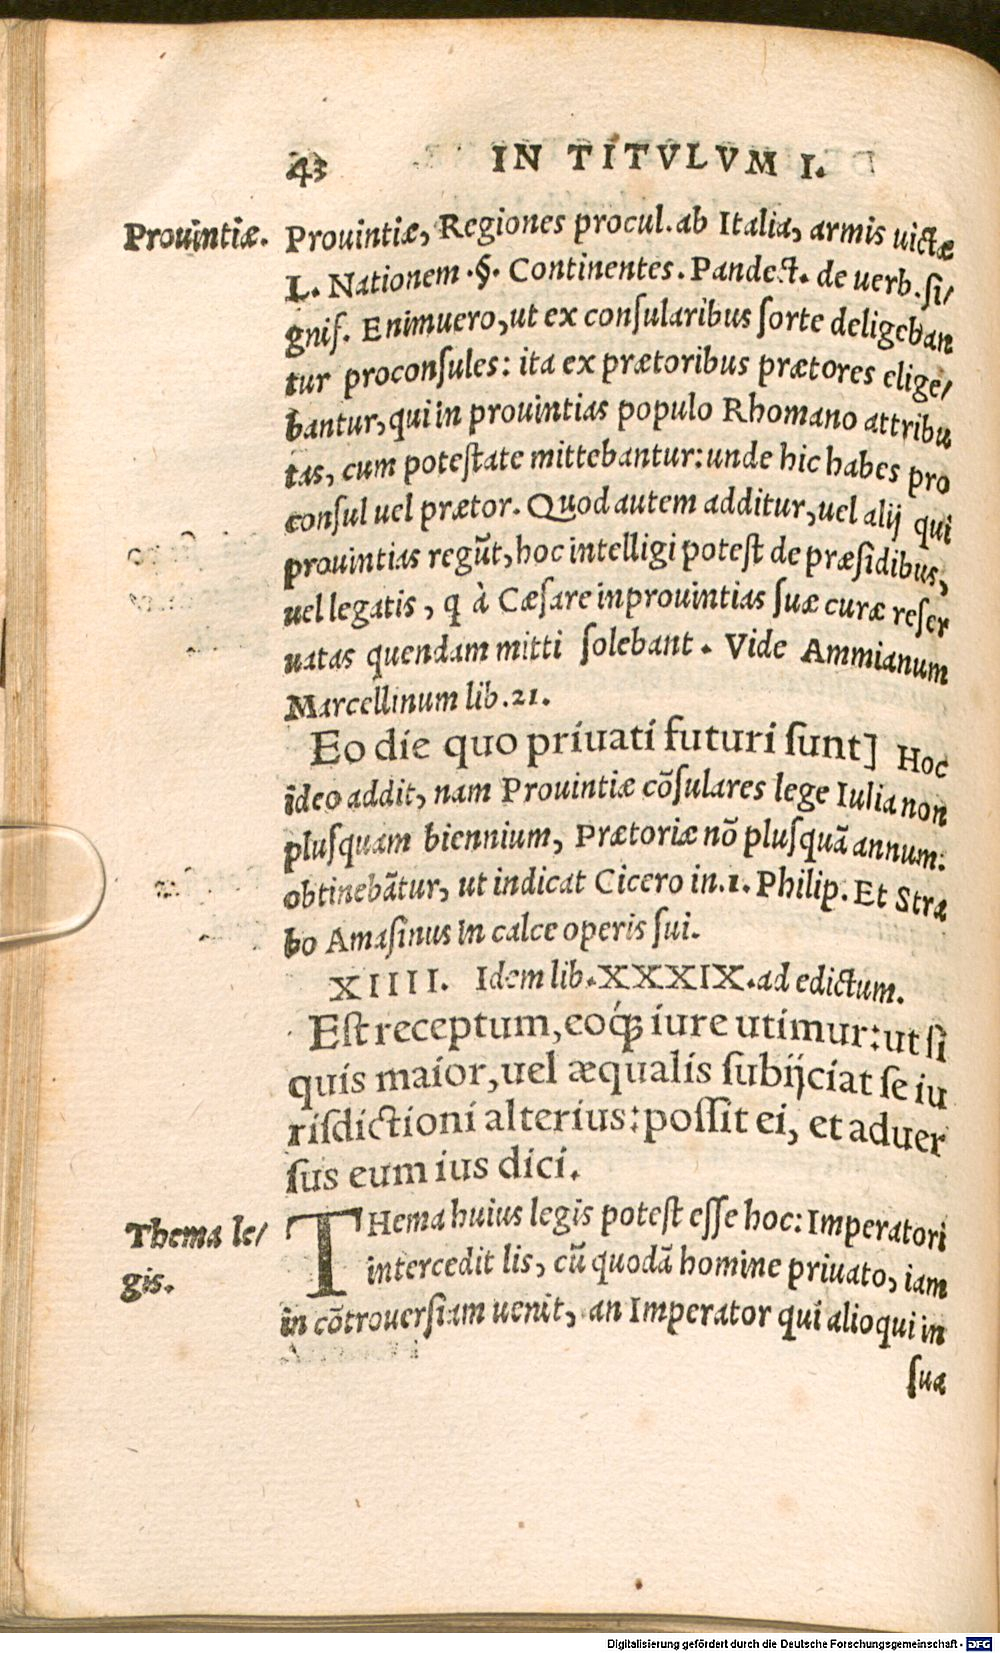 43 IN TITVLVM I.
Prouintiæ. Prouintiæ, Regiones procul.ab Italia, armis uictæ
L. Nationem .§. Continentes. Pandect. de uerb.ſi/
gniſ. Enimuero, ut ex conſularibus ſorte deligeban
tur proconſules: ita ex prætoribus prætores elige/
bantur, qui in prouintias populo Rhomano attribu
tas, cum poteſtate mittebantur: unde hic habes pro
conſul uel prætor. Quod autem additur, uel alij qui
prouintias regūt, hoc intelligi poteſt de præſidibus,
uel legatis, q à Cæſare in prouintias ſuæ curæ reſer
uatas quendam mitti ſolebant. Vide Ammianum
Marcellinum lib.21.
Eo die quo priuati futuri ſunt] Hoc
ideo addit, nam Prouintiæ cōſulares lege Iulia non
pluſquam biennium, Prætoriæ nō pluſquā annum:
obtinebātur, ut indicat Cicero in.1. Philip. Et Stra
bo Amaſinus in calce operis ſui.
XIIII. Idem lib.XXXIX.ad edictum.
Eſt receptum, eoq́; iure utimur: ut ſi
quis maior, uel æqualis ſubijciat ſe iu
riſdictioni alterius: poſſit ei, et aduer
ſus eum ius dici.
Thema le/
gis.
THema huius legis poteſt eſſe hoc: Imperatori
intercedit lis, cū quodā homine priuato, iam
in cōtrouerſiam uenit, an Imperator qui alioqui in
ſuæ
Digitalisierung gefördert durch die Deutsche Forschungsgemeinschaft - DFG